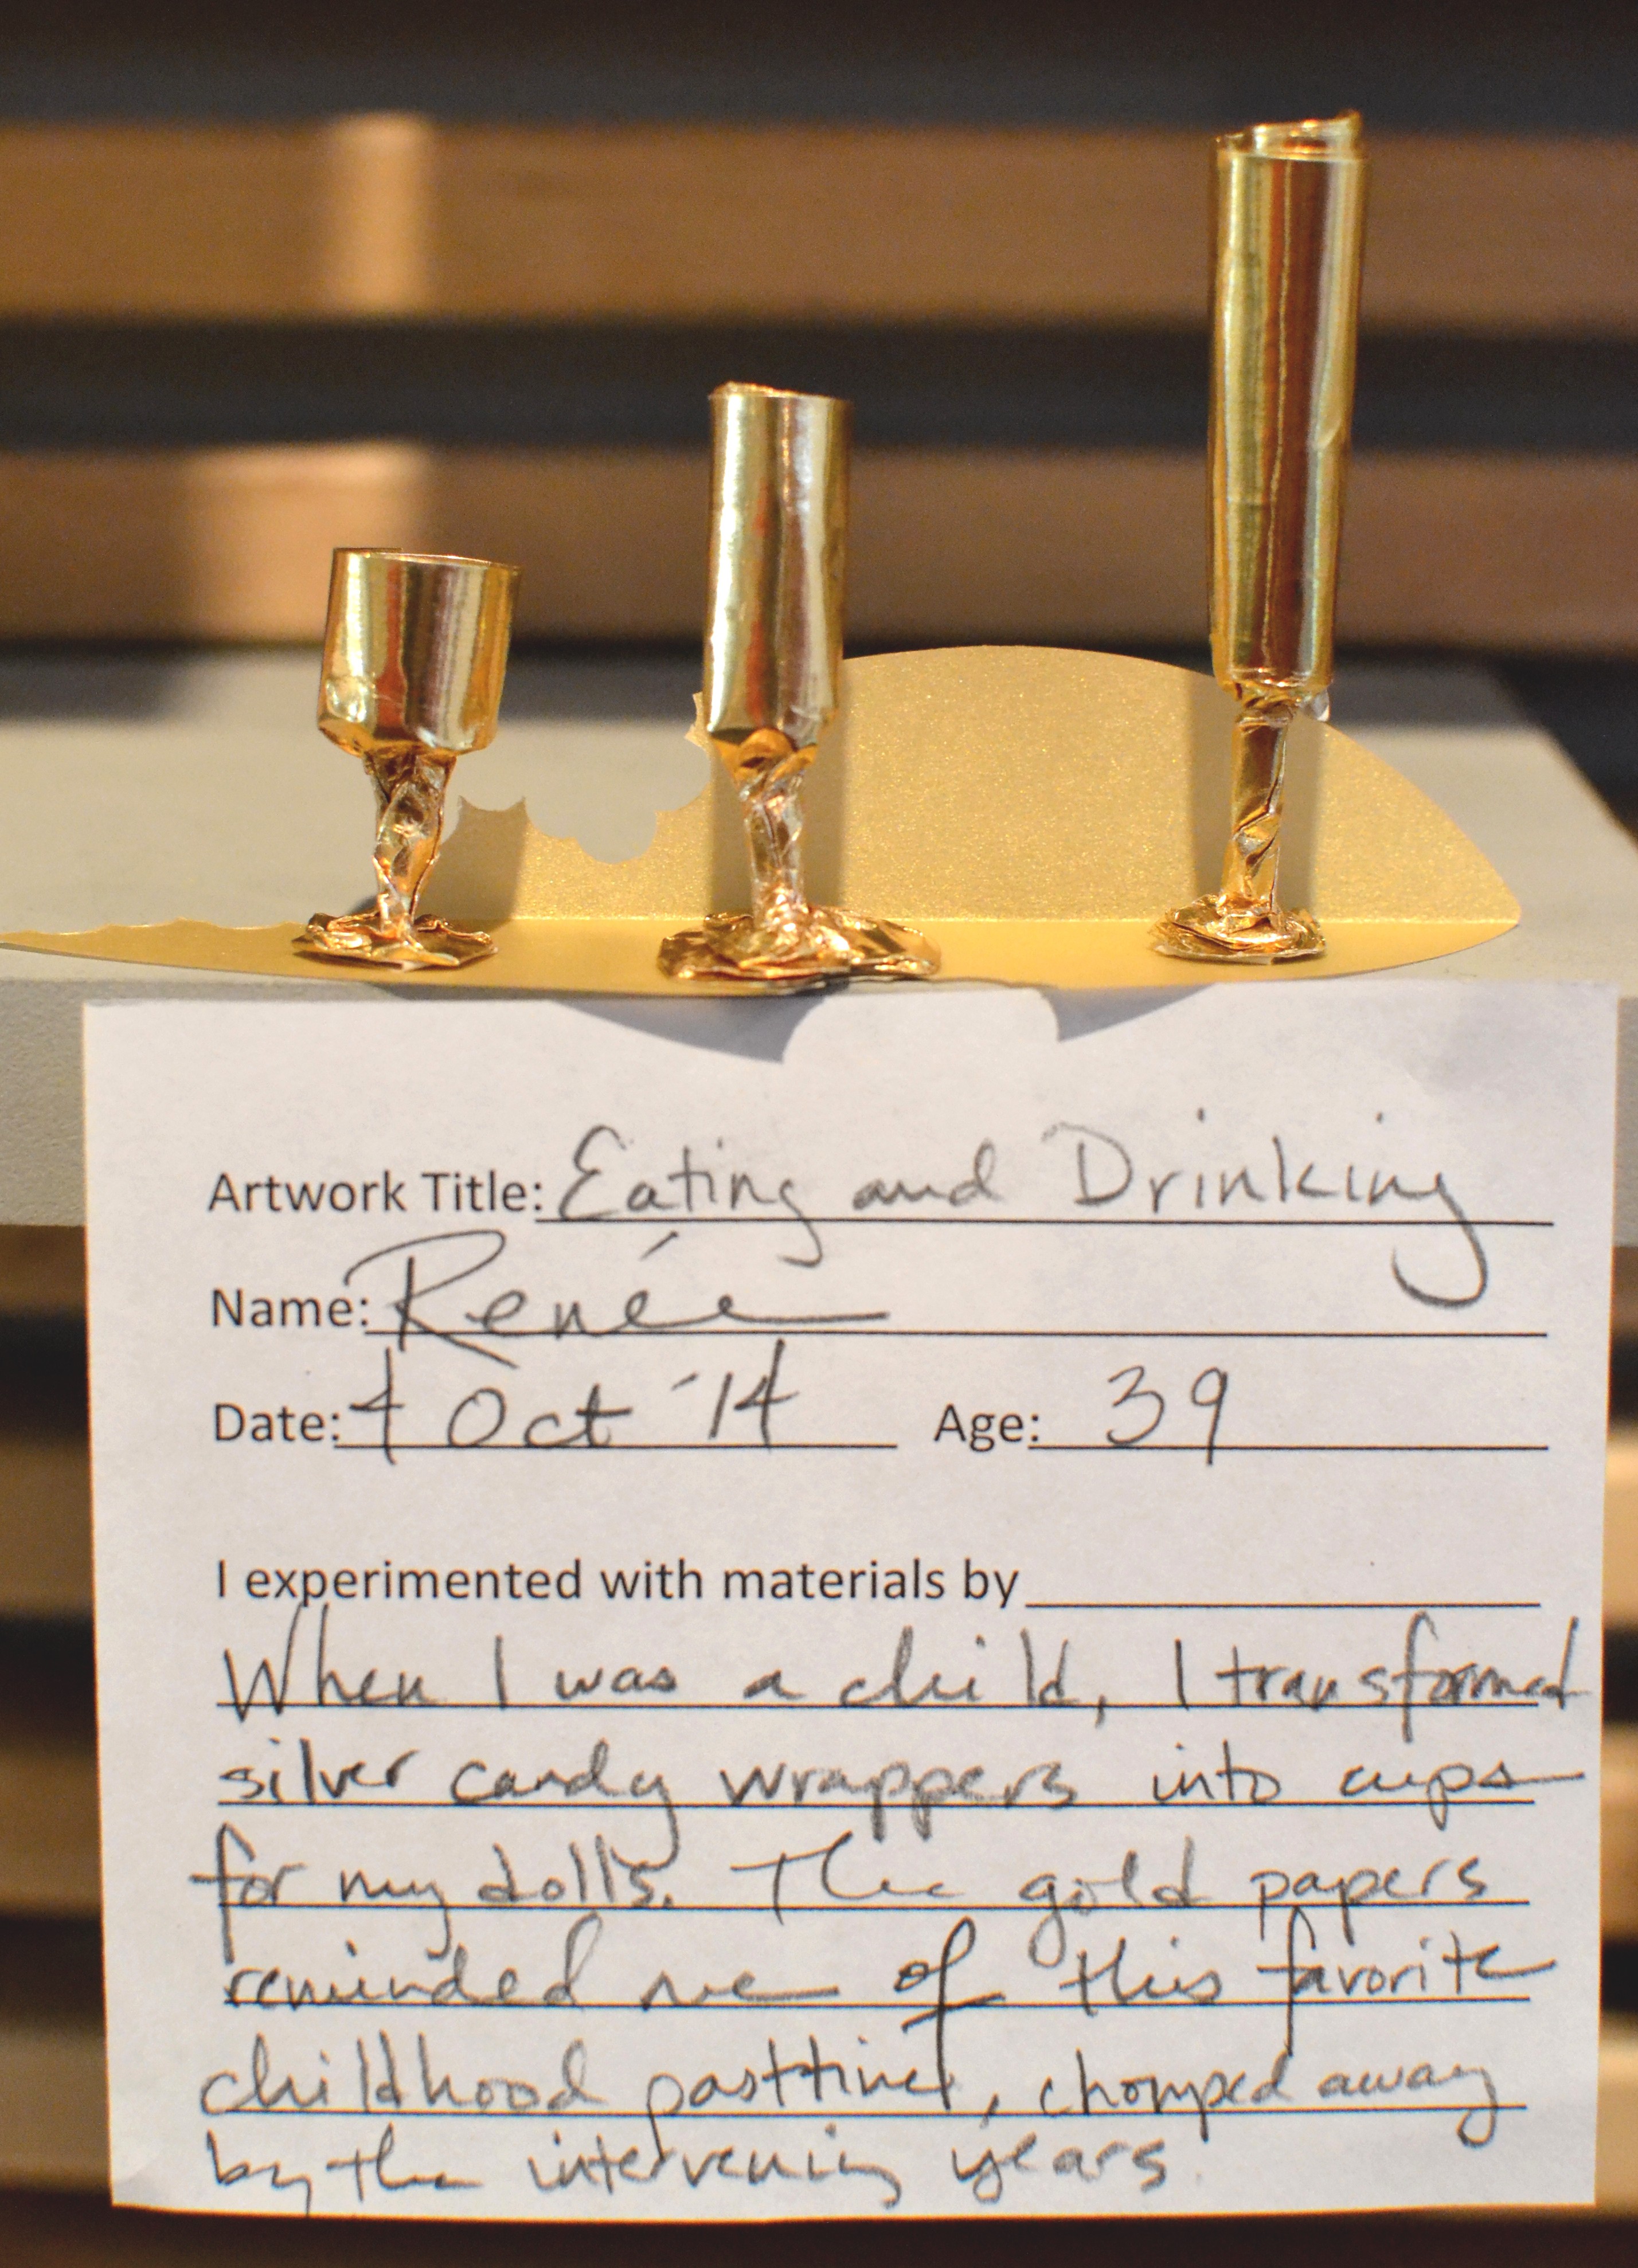 Artwork Title: Eating and Drinking
Name: Renée
Date: 4 Oct '14 Age: 39
I experimented with materials by
When I was a child, I transformed
silver candy wrappers into cups
for my dolls. The gold papers
reminded me of this favorite
childhood pasttime, chomped away
by the intervening years.